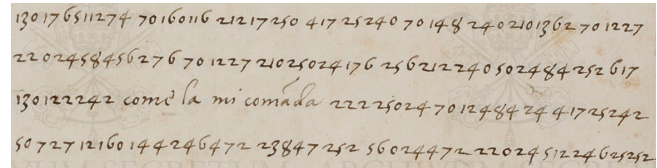 130176511274 70160116 21217250 41725240 70148 2402101362 701227
22024584562 76 701227 2102502417 6 256212240 502484252617
130122242 come la mi comāda 222250247012484244 17252 42
50727121601442 46472 23847252 56024472 22024512246 25252